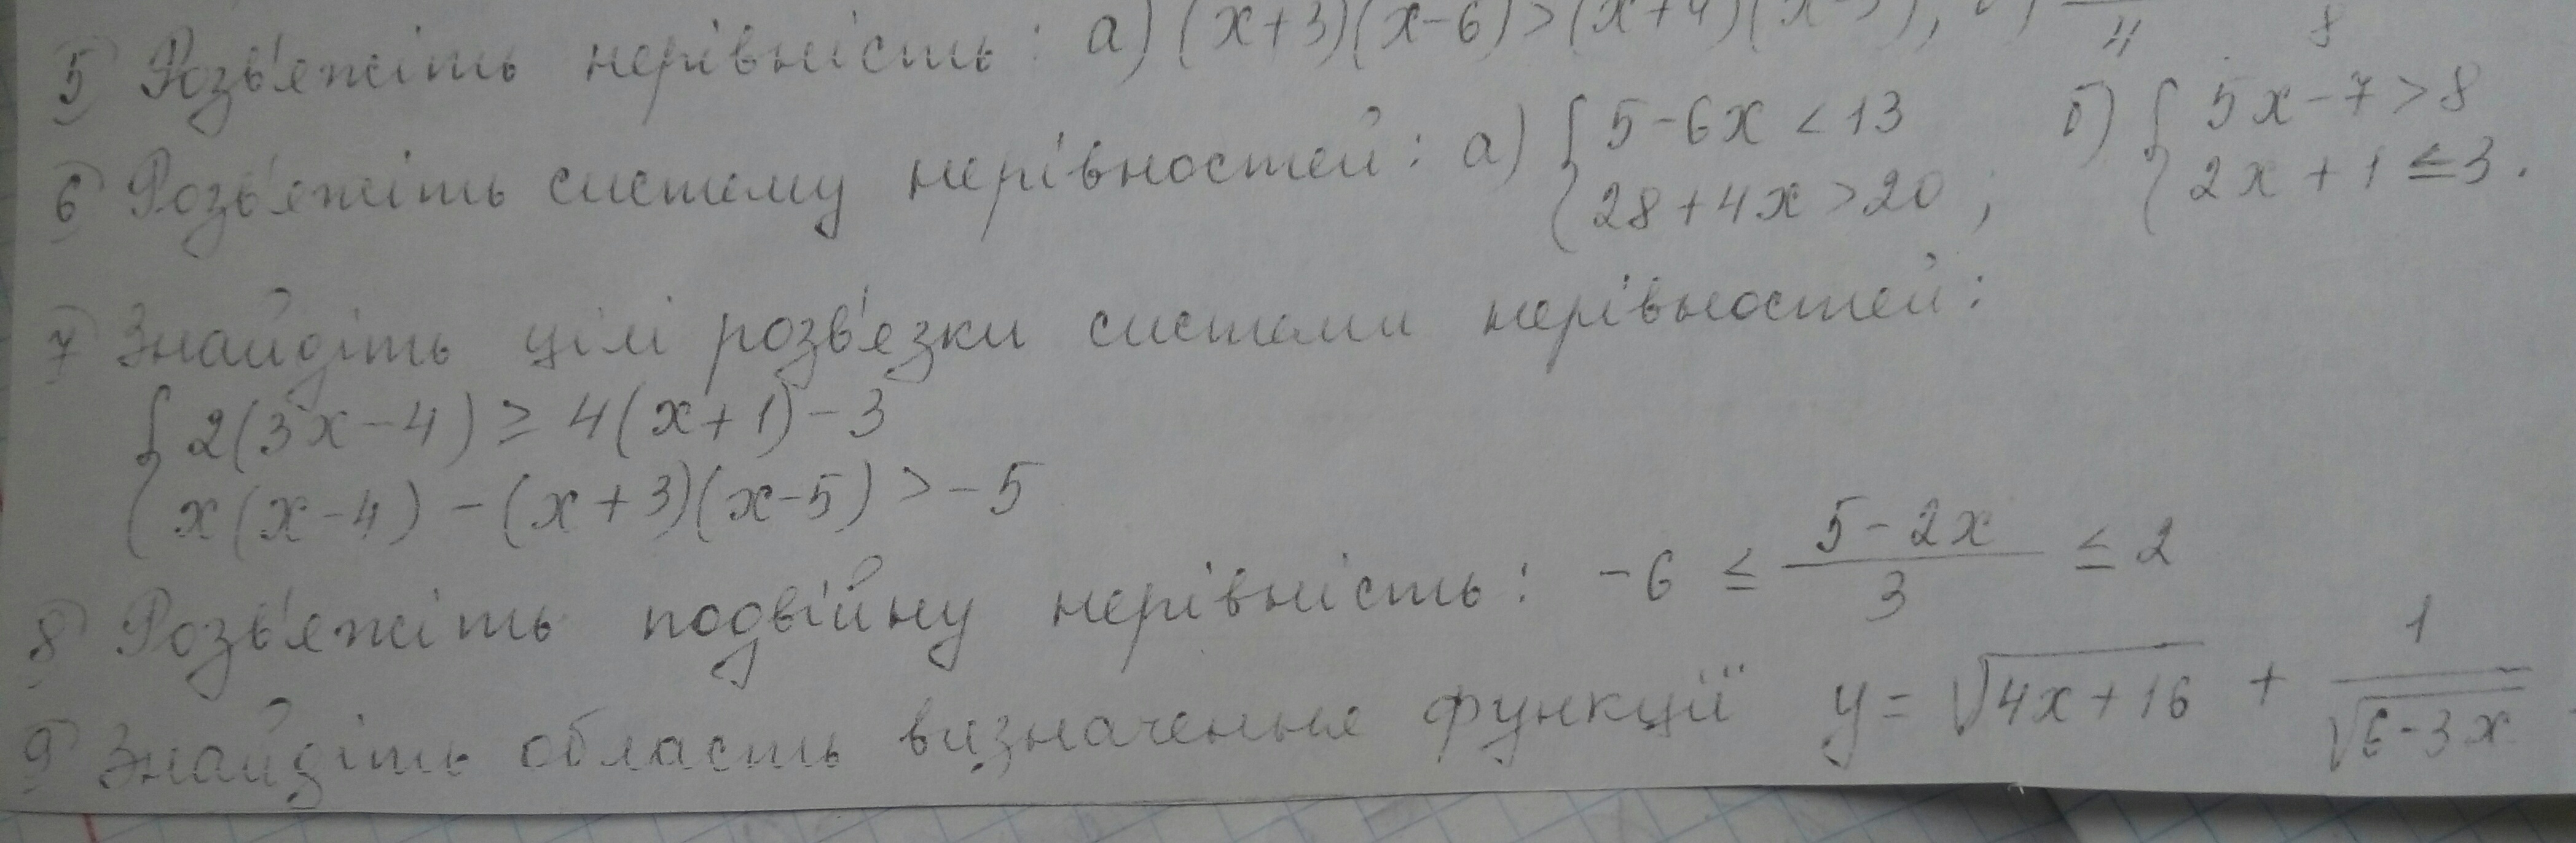 5) Розв'яжіть нерівність: а) (x+3)(x-6)>(x+4)(x-
6) Розв'яжіть систему нерівностей: а) { 5-6x<13 б) { 5x-7>8
28+4x>20; 2x+1≤3.
7) Знайдіть цілі розв'язки системи нерівностей:
{ 2(3x-4)≥4(x+1)-3
x(x-4)-(x+3)(x-5)>-5
8) Розв'яжіть подвійну нерівність: -6≤(5-2x)/3≤2
9) Знайдіть область визначення функції y=√(4x+16)+1/√(6-3x)